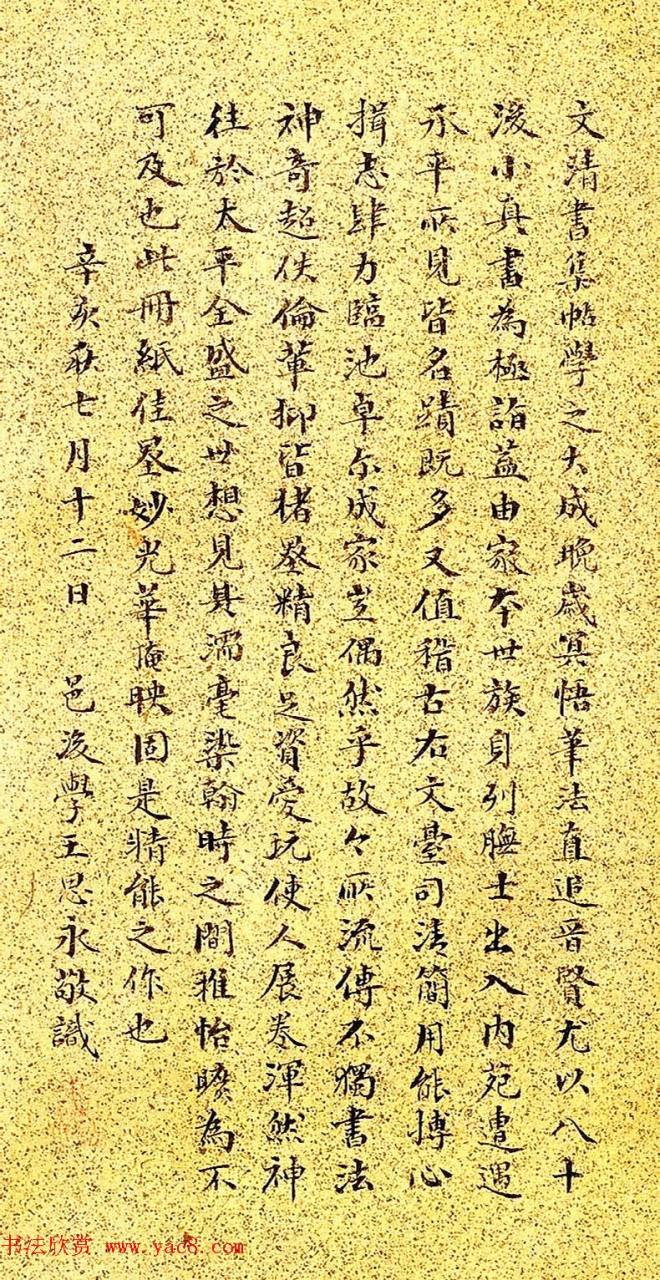 文清書集帖學之大成晚歲冥悟筆法直追晉賢尤以八十
後小真書為極詣蓋由家本世族身列膴士出入內苑遭遇
承平所見皆名蹟既多又值稽古右文臺司清簡用能摶心
揖志肆力臨池卓尔成家豈偶然乎故々所流傳不獨書法
神奇超佚倫輩抑皆楮墨精良足資愛玩使人展卷渾然神
往於太平全盛之世想見其濡毫染翰時之閒雅怡曠為不
可及也此冊紙佳墨妙光華庵映固是精能之作也
辛亥秋七月十二日 邑後學王思永敬識
书法欣赏 www.yac8.com